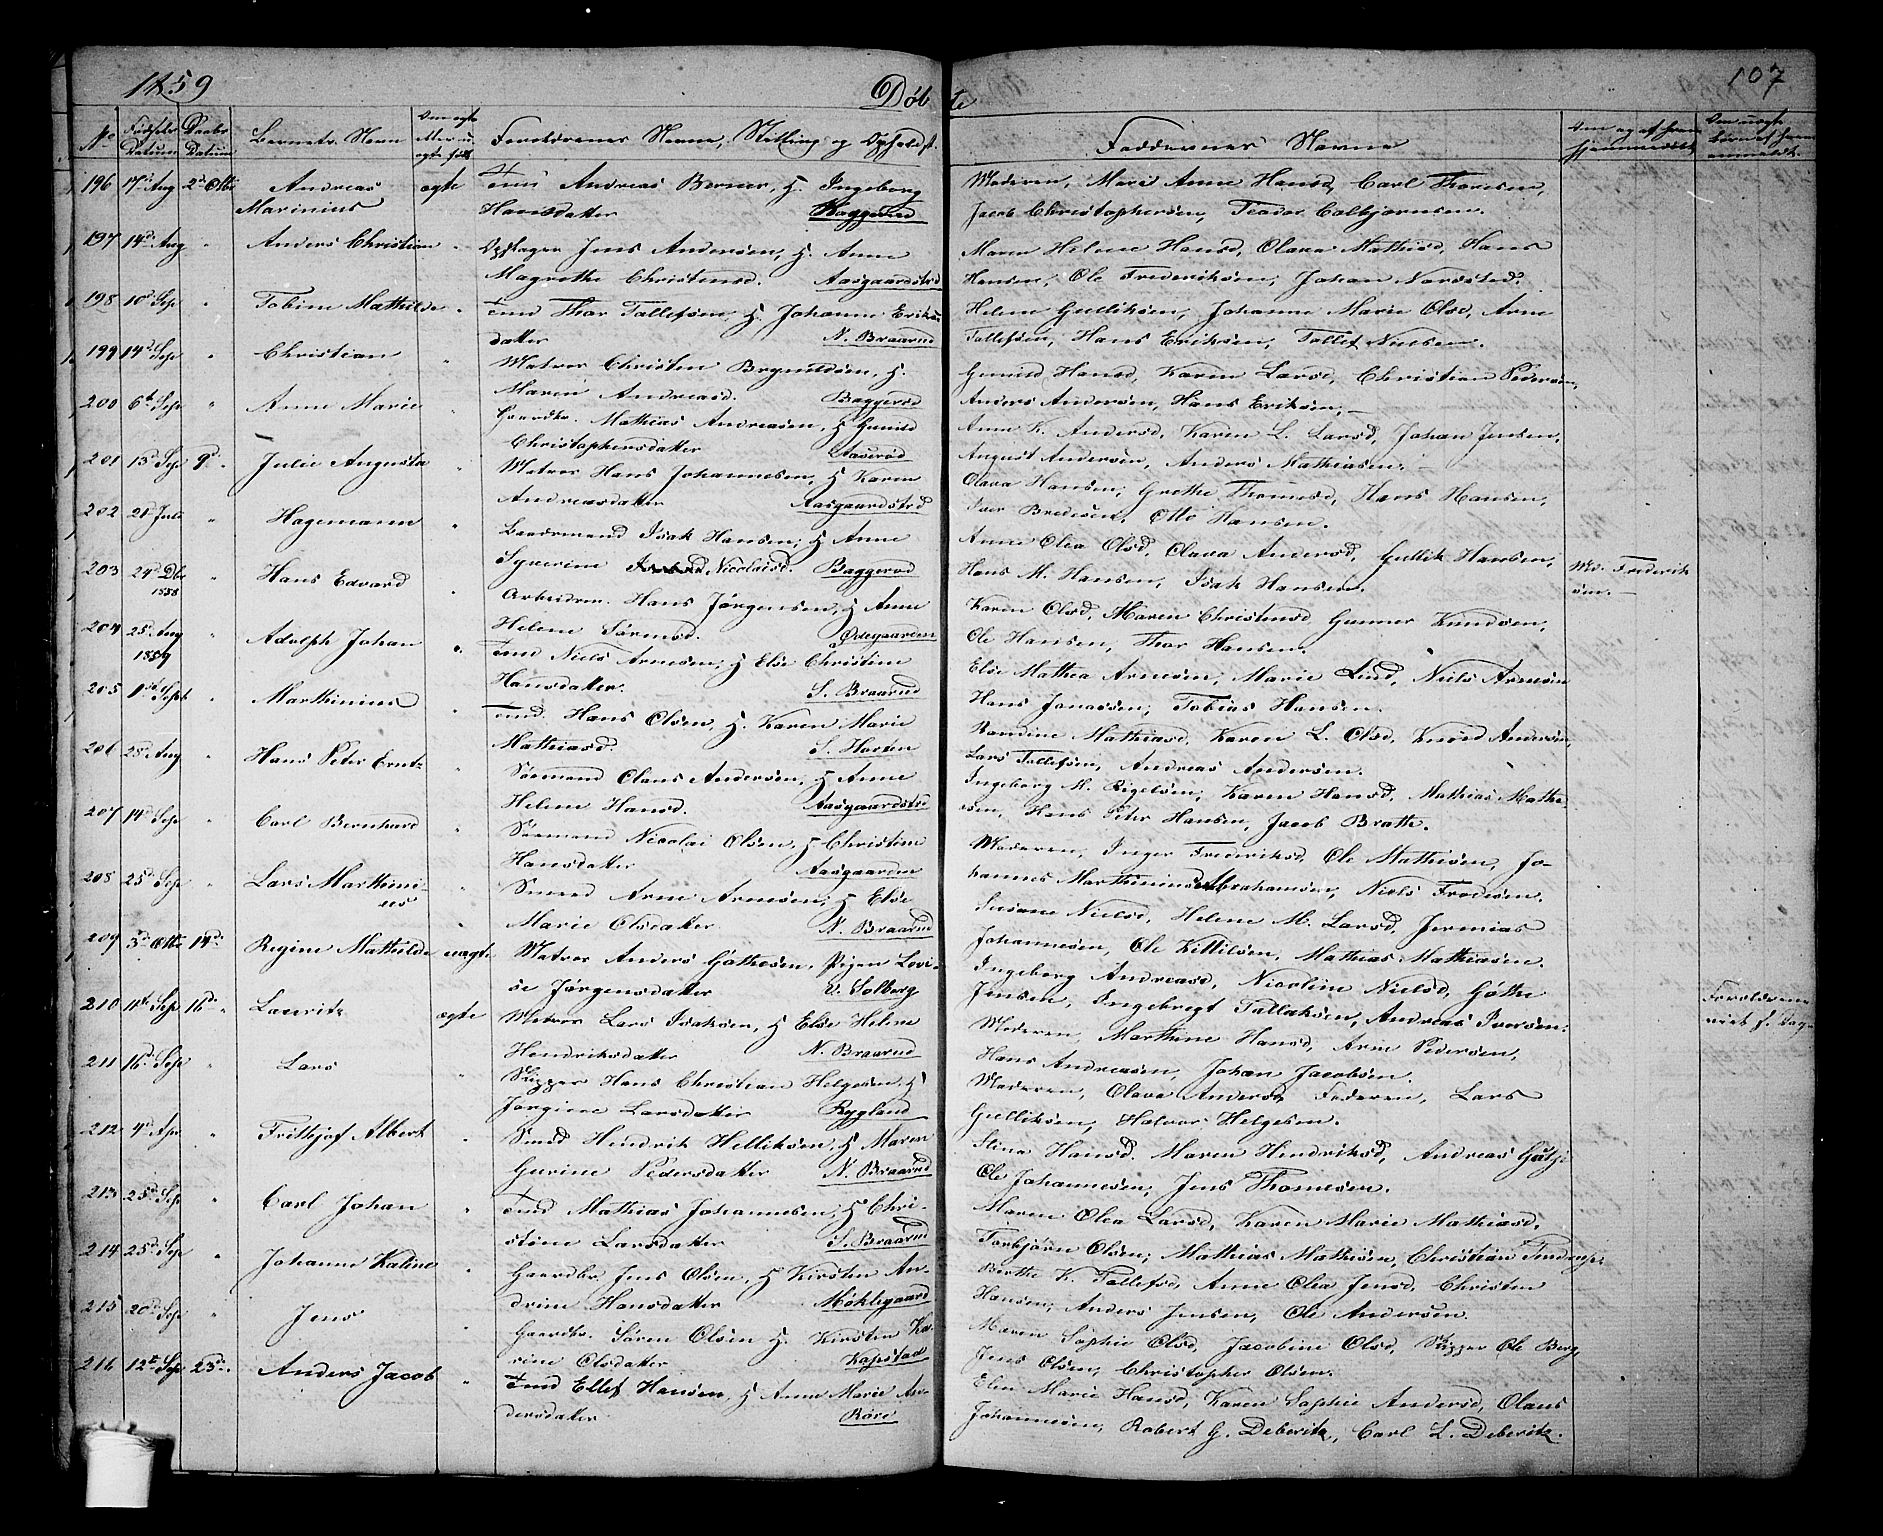 1859 Døbte 107
No Fødsels Datum Daabs Datum Barnets Navn Om ægte eller u- ægte født Forældrenes Navne, Stilling og Opholdst. Faddernes Navne Om og af hvem hjemmedøbt
196 17d Aug 2d Octbr Andreas Marinius ægte Tmd Andreas Berner, H. Ingeborg
Hansdatter Baggerød
Moderen, Mari Anne Hansd, Carl Thoresen,
Jacob Christophersen, Teodor Colbjørnsen.
197 14d Aug " Anders Christian " Opsitager Jens Andersøn, H. Anne
Magrethe Christensd. Aasgaardstrd
Maren Helene Hansd, Olava Mathisd, Hans
Hansen, Ole Frederiksøn, Johan Nordsted.
198 10d Sep " Tobine Mathilde " Tmd Thor Tallefsøn, H. Johanne Eriks-
datter N. Braarud
Helene Gulliksøn, Johanne Marie Olsd, Arne
Tallefsøn, Hans Eriksen, Tallef Nielsen.
199 14d Sep " Christian " Matros Christen Brynildsøn, H.
Maren Andreasd. Baggerød
Gunild Hansd, Karen Larsd, Christian Pedersøn,
Anders Andersøn, Hans Eriksen,
200 6te Sep " Anne Marie " Gaardbr. Mathias Andreasen, H Gunild
Christophersdatter Aaserød
Anne K. Andersd, Karen L. Larsd, Johan Jensen,
August Andersøn, Anders Mathiasen.
201 13d Sep 9d " Julie Augusta " Matros Hans Johannesen, H Karen
Andreasdatter Aasgaardstrd
Olava Hansen, Grethe Thomesd, Hans Hansen,
Iver Bredesen, Otto Hansen.
202 21 Juli " Hagemann " Baadsmand Isak Hansen, H Anne
Syverine Nicolaisd. Baggerød
Anne Olea Olsd, Olava Andersd, Gullik Hansen,
Hans M. Hansen, Isak Hansen.
203 24d Dbr 1858 " Hans Edvard " Arbeidsm. Hans Jørgensen, H Anne
Helene Sørensd. Ødegaarden
Karen Olsd, Maren Christensd Gunner Knudsøn,
Ole Hansen, Thor Hansen.
Md. Frederik
søn.
204 25d Aug 1859 " Adolph Johan " Tmd Niels Arnesen, H Else Christine
Hansdatter. S. Braarud
Else Mathea Arnesøn, Marie Lind, Niels Arnesøn
Hans Jonassen, Tobias Hansen.
205 1ste Septb " Marthinius " Tmd. Hans Olsen, H. Karen Marie
Mathiasd. S. Horten
Randine Mathiasd, Karen L. Olsd, Knud Andersøn,
Lars Tallefsøn, Andreas Andersøn.
206 28d Aug " Hans Peter Erntz " Sømand Claus Andersøn, H Anne
Helene Hansd. Aasgaardstrd
Ingeborg M. Rigelsøn, Karen Hansd, Mathias Mathi-
sen, Hans Peter Hansen, Jacob Brath.
207 14d Sep " Carl Bernhard " Sømand Nicolai Olsen, H Christine
Hansdatter Aasgaarden
Moderen, Inger Frederiksd, Ole Mathisen, Jo-
hannes Marthinius Abrahamsen, Niels Frodesen.
208 25d Sep " Lars Marthini-
us " Smed Arne Arnesøn, H Else
Marie Olsdatter N. Braarud
Susane Nielsd, Helene M. Larsd, Jeremias
Johannesøn, Ole Kittilsøn, Mathias Mathiasen.
209 3d Octbr 14d " Regine Mathilde uægte Matros Anders Gøthesøn, Pigen Lovi-
se Jørgensdatter V. Solberg
Ingeborg Andreasd, Nicoline Nielsd, Gøthe
Jensen, Ingebregt Tallaksen, Andreas Iversen.
Forældrene
210 11te Sep 16d " Lauritz ægte Matros Lars Isaksøn, H Else Helene
Hendriksdatter N. Braarud
Moderen, Marthine Hansd, Arne Pedersøn,
Hans Andreasøn, Johan Jacobsøn.
211 16d Sep " Lars " Skipper Hans Christian Helgesen, H
Jørgine Larsdatter Rygland
Moderen, Olava Andersd, Faderen, Lars
Gulliksøn, Halvor Helgesen.
212 4d Apr " Frithjof Albert " Smed Hendrik Helliksøn, H Maren
Gurine Pedersdatter N. Braarud
Stina Hansd. Maren Hendriksd, Andreas Gøtzi
Ole Johannesøn, Jens Thomesen.
213 25d Sep " Carl Johan " Tmd Mathias Johannesen, H Chri-
stine Larsdatter S. Braarud
Maren Olea Larsd, Karen Marie Mathiasd,
Torbjørn Olsøn, Mathias Mathisøn, Christian
214 25d Sep " Johanne Kaline " Gaardbr. Jens Olsøn, H Kirsten An-
drine Hansdatter Møklegaard
Berthe K. Tallefsd, Anne Olea Jensd, Christen
Hansen, Anders Jensen, Ole Andersøn.
215 20d Sep " Jens " Gaardbr. Søren Olsøn H. Kirsten Ka-
rine Olsdatter Kapstad
Maren Sophie Olsd, Jacobine Olsd, Skipper Ole Berg,
Jens Olsøn, Christopher Olsøn.
216 12te Sep 23d " Anders Jacob " Tmd Ellef Hansen, H Anne Marie An-
dersdatter Røre
Elen Marie Hansd, Karen Sophie Andersd, Olaus
Johannesøn, Robert G. Deberitz, Carl L. Deberitz.